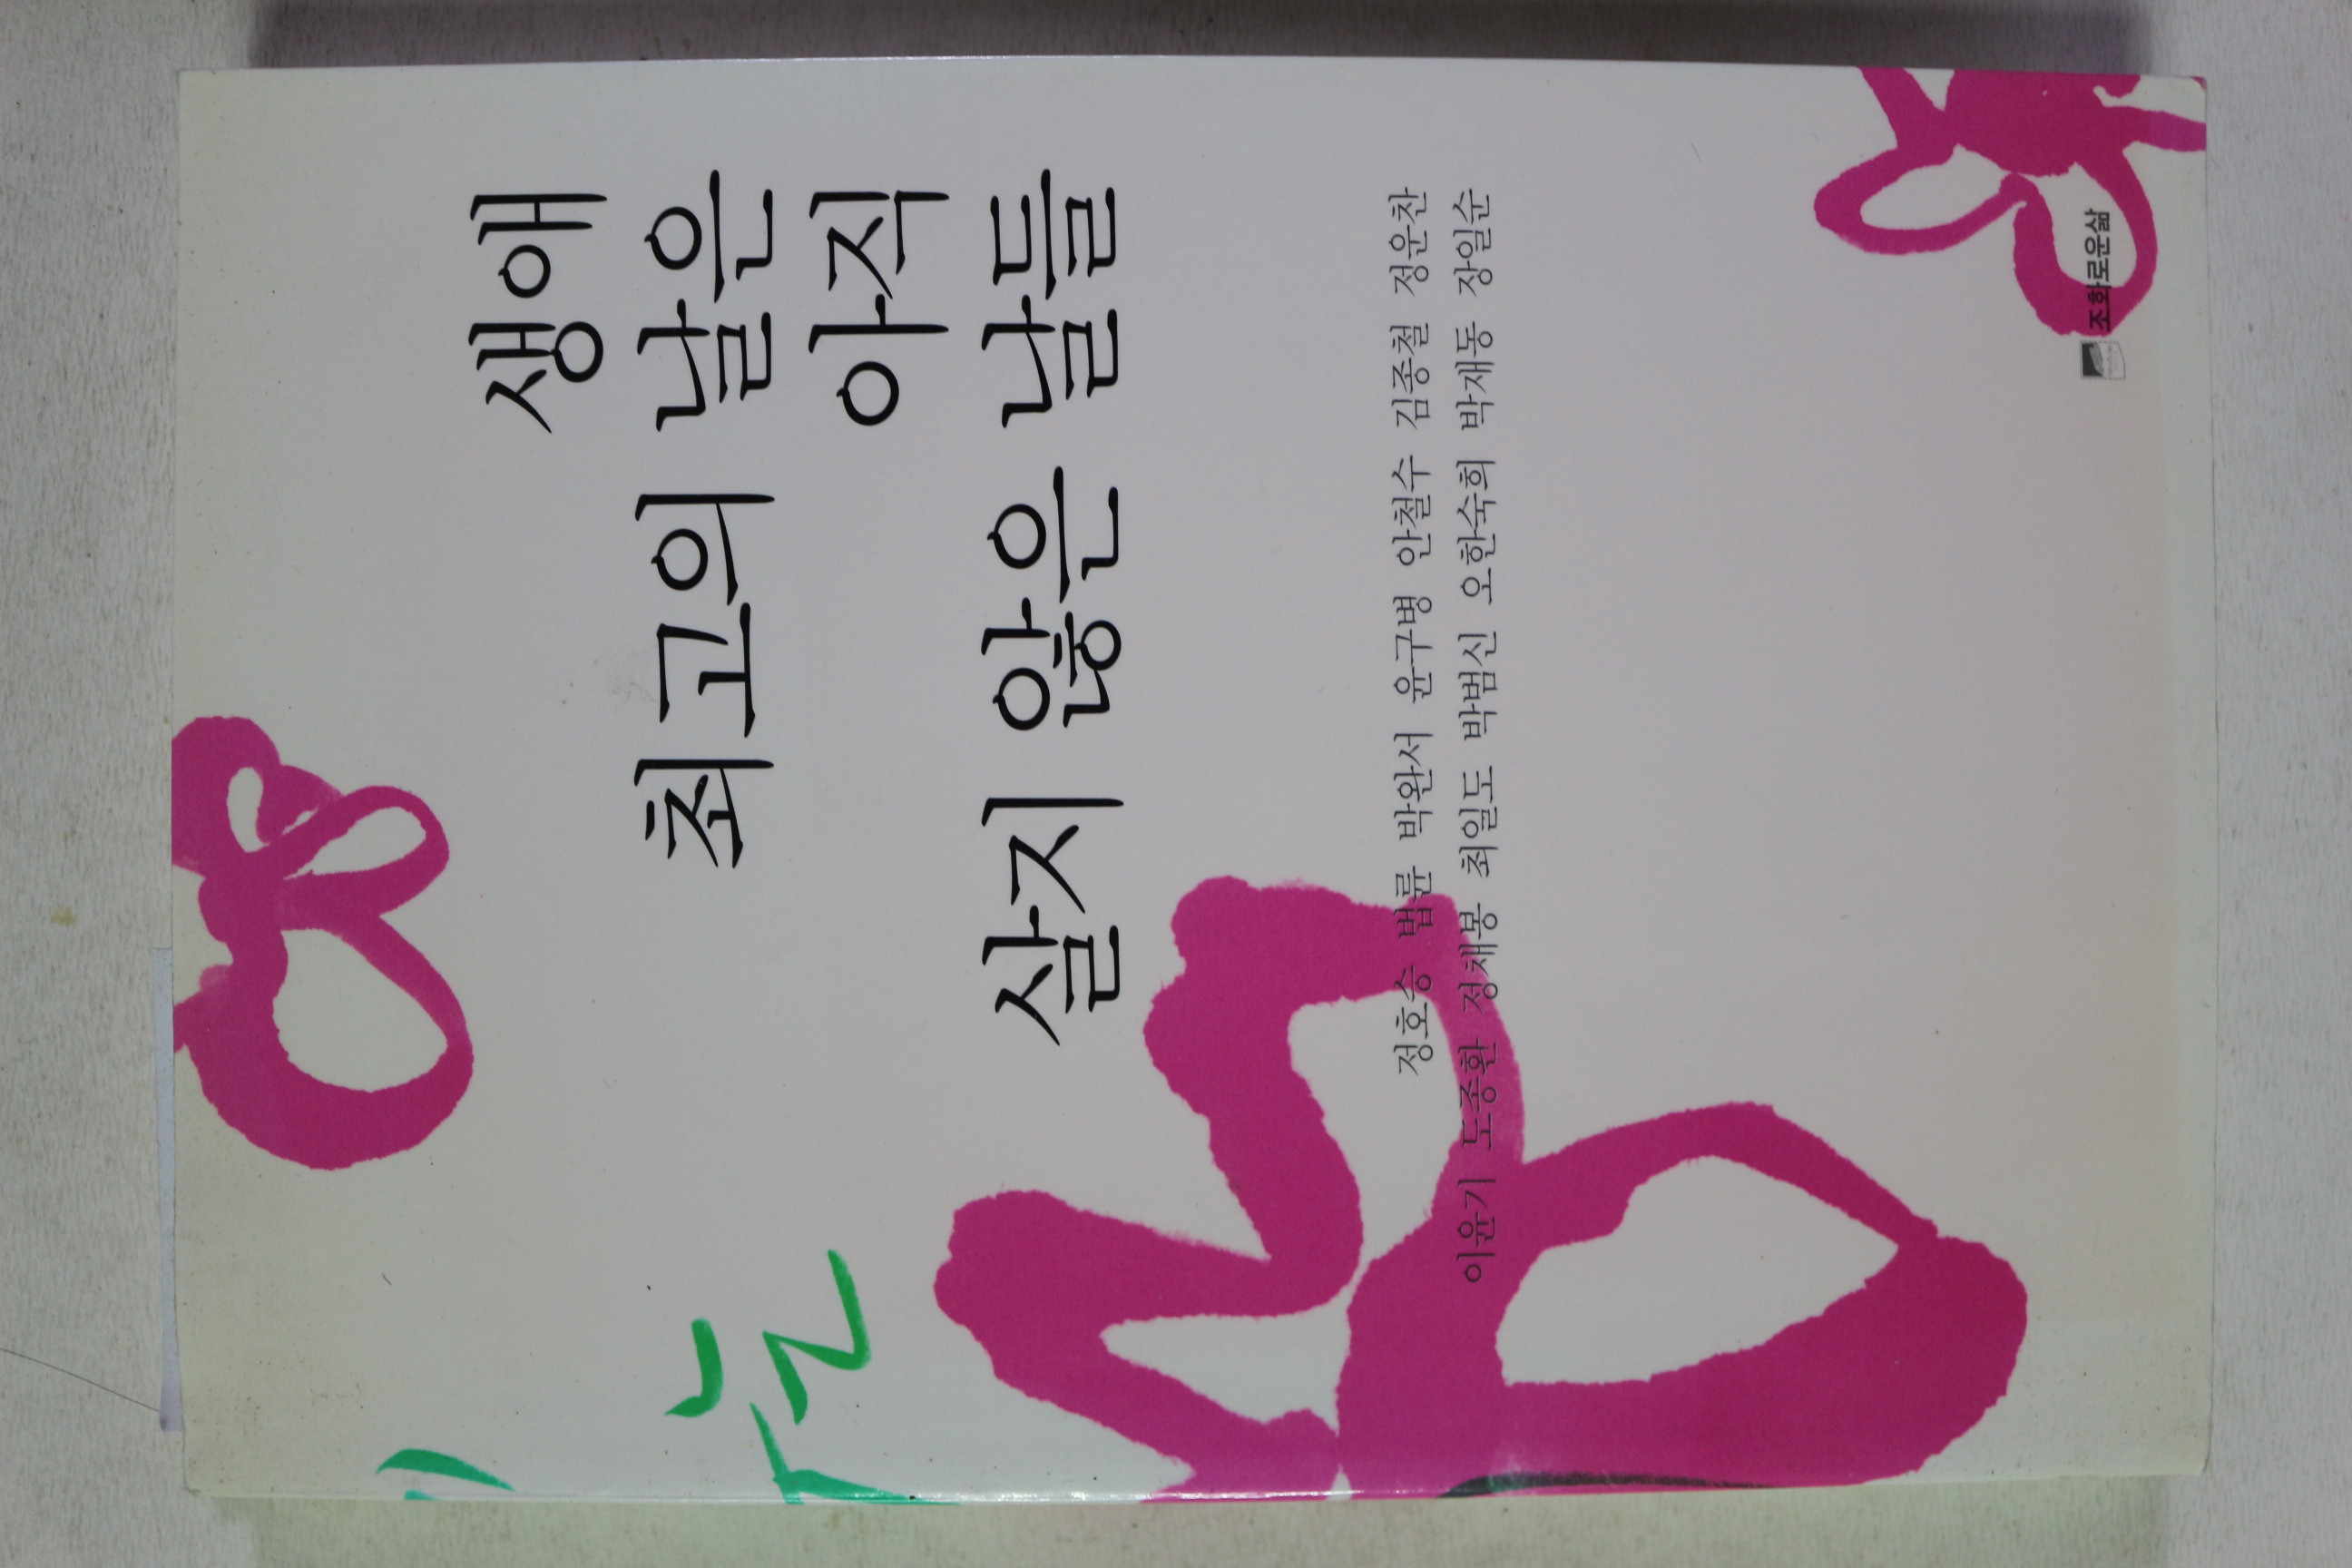 생애
최고의 날은
아직
살지 않은 날들
정호승 법륜 박완서 윤구병 안철수 김종철 정운찬
이윤기 도종환 정채봉 최일도 박범신 오한숙희 박재동 장일순
조화로운삶